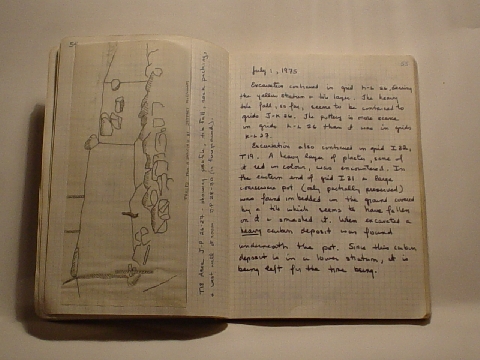 54
55
July 1, 1975
Excavation continued in grid K-L 26, baring
the yellow stratum & tile layer. The heavy
tile fall, so far, seems to be confined to
grids J-K 26. The pottery is more scarce
in grids K-L 26 than it was in grids
K-L 27.
Excavation also continued in grid I 22,
T19. A heavy layer of plaster, some of
it red in colour, was encountered. In
the eastern end of grid I 21 a large
coarseware pot (only partially preserved)
was found imbedded in the ground covered
by a tile which seems to have fallen
on it & smashed it. When excavated a
heavy carbon deposit was found
underneath the pot. Since this carbon
deposit is in a lower stratum, it is
being left for the time being.
T19 Area J-P 26-27 showing plaster, tile fall, rock packing,
& west wall of room